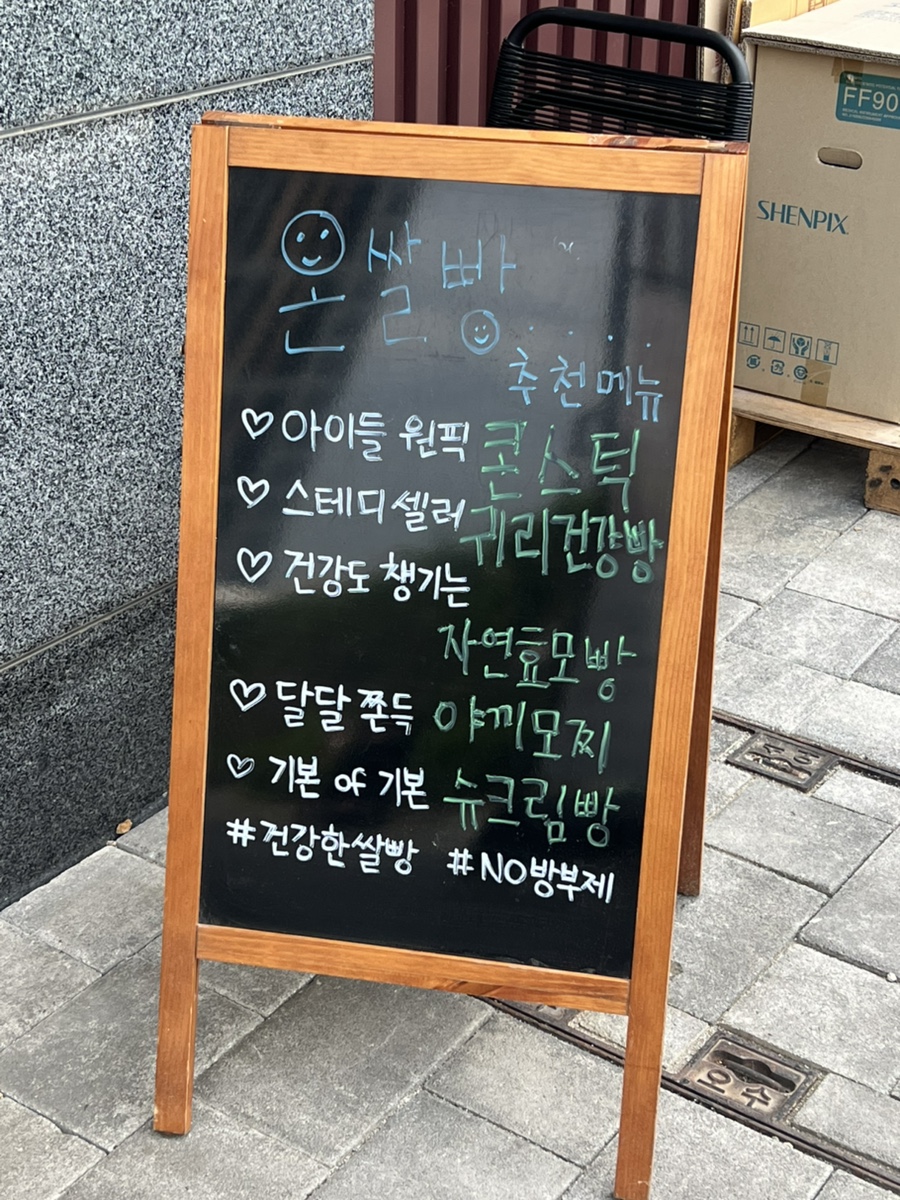 온쌀빵....
추천메뉴
♡ 아이들 원픽 콘스틱
♡ 스테디셀러 귀리건강빵
♡ 건강도 챙기는
자연효모빵
♡ 달달 쫀득 야끼모찌
♡ 기본 of 기본 슈크림빵
#건강한쌀빵 #NO방부제
FF90
SHENPIX
오수
오수